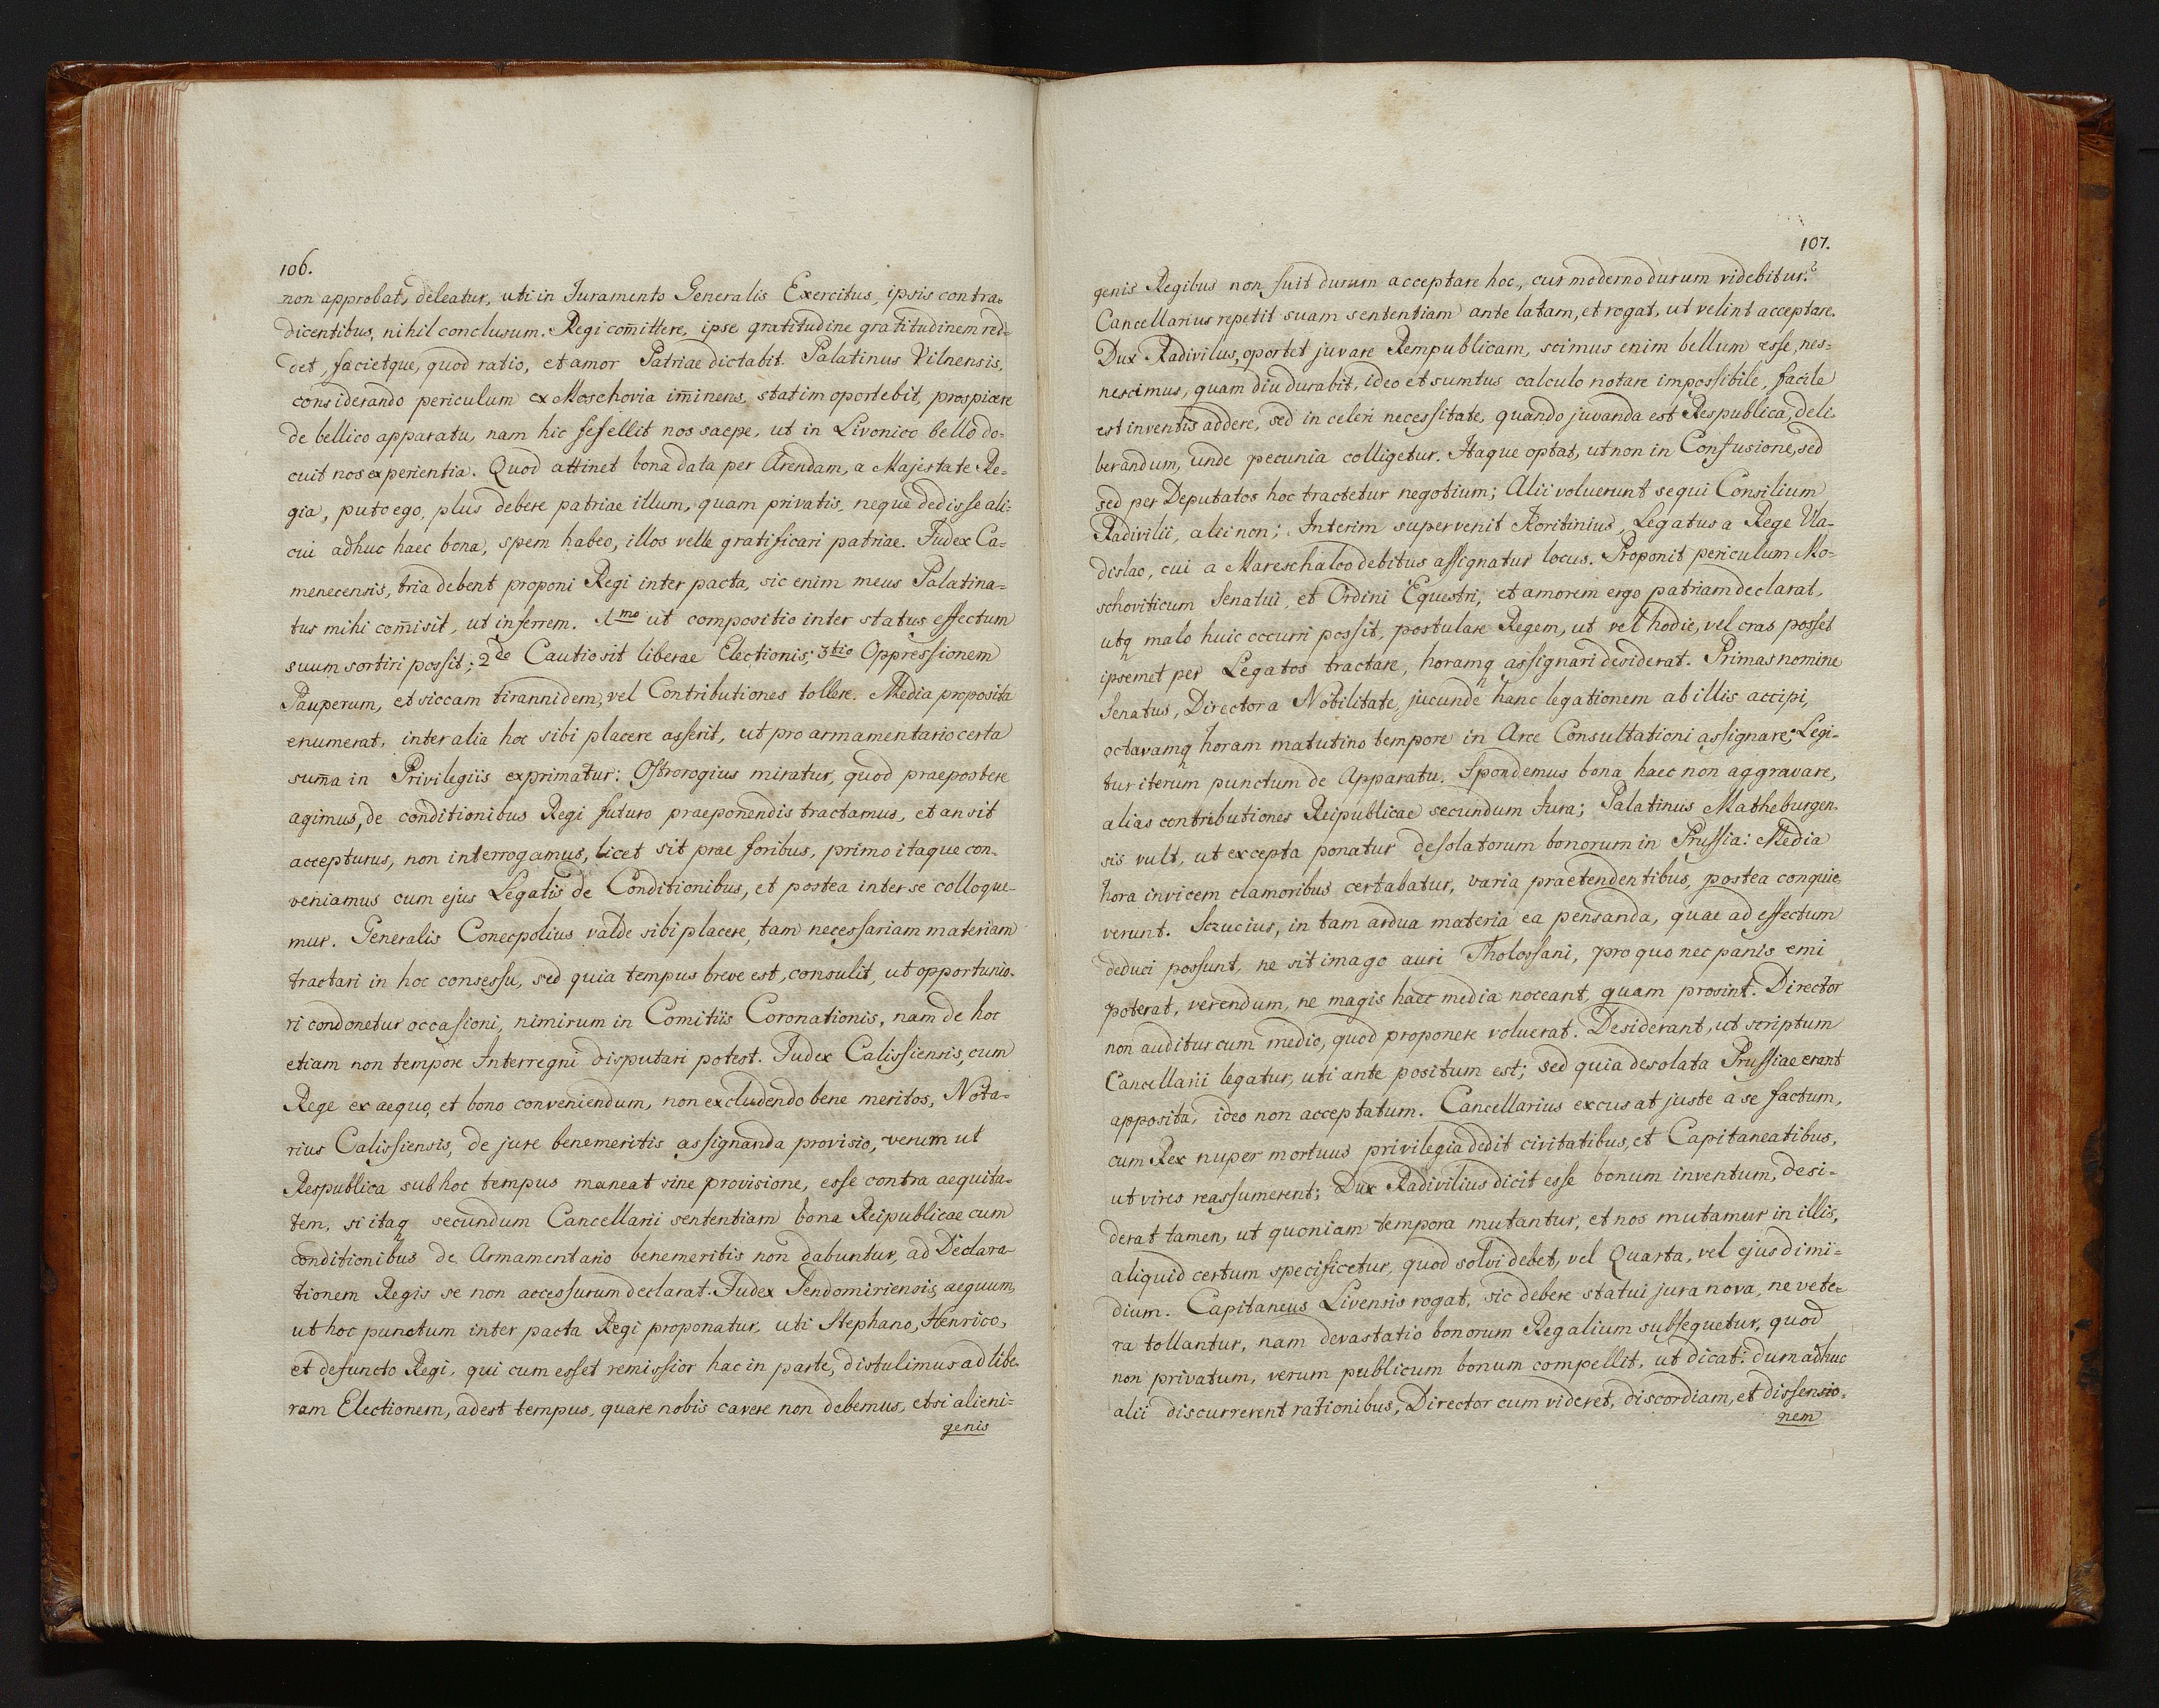 106.
non approbat, deleatur, uti in Juramento Generalis Exercitus, ipsis contra-
dicentibus, nihil conclusum. Regi com̄ittere, ipse gratitudine gratitudinem red-
det, facietque, quod ratio, et amor Patriae dictabit. Palatinus Vilnensis,
considerando periculum ex Moschovia im̄inens, statim oportebit, prospicere
de bellico apparatu, nam hic fefellit nos saepe, ut in Livonico bello do-
cuit nos experientia. Quod attinet bona data per Arendam, a Majestate Re-
gia, puto ego, plus debere patriae illum, quam privatis, neque dedisse ali-
cui adhuc haec bona, spem habeo, illos velle gratificari patriae. Judex Ca-
menecensis, tria debent proponi Regi inter pacta, sic enim meus Palatina-
tus mihi com̄isit, ut inferrem. 1mo ut compositio inter status effectum
suum sortiri possit; 2do Cautio sit liberae Electionis; 3tio Oppressionem
Pauperum, et siccam tirannidem, vel Contributiones tollere. Media proposita
enumerat, inter alia hoc sibi placere asserit, ut pro armamentario certa
sum̄a in Privilegiis exprimatur: Ostrorogius miratur, quod praepostere
agimus, de conditionibus Regi futuro praeponendis tractamus, et an sit
accepturus, non interrogamus, licet sit prae foribus, primo itaque con-
veniamus cum ejus Legatis de Conditionibus, et postea inter se colloque-
mur. Generalis Conecpolius valde sibi placere, tam necessariam materiam
tractari in hoc consessu, sed quia tempus breve est, consulit, ut opportunio-
ri condonetur occasioni, nimirum in Comitiis Coronationis, nam de hoc
etiam non tempore Interregni disputari potest. Judex Calissiensis, cum
Rege ex aequo, et bono conveniendum, non excludendo bene meritos, Nota-
rius Calissiensis, de jure benemeritis assignanda provisio, verum ut
Respublica sub hoc tempus maneat sine provisione, esse contra aequita-
tem, si itaq secundum Cancellarii sententiam bona Reipublicae cum
conditionibus de Armamentario benemeritis non dabuntur, ad Declara-
tionem Regis se non accessurum declarat. Judex Sendomiriensis, aequum,
ut hoc punctum inter pacta Regi proponatur, uti Stephano, Henrico,
et defuncto Regi, qui cum esset remissior hac in parte, distulimus ad libe-
ram Electionem, adest tempus, quare nobis cavere non debemus, etsi alieni-
genis
107.
genis Regibus non fuit durum acceptare hoc, cur moderno durum videbitur?
Cancellarius repetit suam sententiam ante latam, et rogat, ut velint acceptare.
Dux Radivilus, oportet juvare Rempublicam, scimus enim bellum esse, nes-
nescimus, quam diu durabit, ideo et sumtus calculo notare impossibile, facile
est inventis addere, sed in celeri necessitate, quando juvanda est Respublica, deli-
berandum, unde pecunia colligetur. Itaque optat, ut non in Confusione, sed
sed per Deputatos hoc tractetur negotium; Alii voluerunt sequi Consilium
Radivilii, alii non; Interim supervenit Koritinius, Legatus a Rege Vla-
dislao, cui a Mareschalco debitus assignatur locus. Proponit periculum Mo-
schoviticum Senatui, et Ordini Equestri, et amorem ergo patriam declarat,
utq malo huic occurri possit, postulare Regem, ut vel hodie, vel cras posset
ipsemet per Legatos tractare, horamq assignari desiderat. Primas nomine
Senatus, Director a Nobilitate, jucunde hanc legationem ab illis accipi,
octavamq horam matutino tempore in Arce Consultationi assignare; Legi-
tur iterum punctum de Apparatu. Spondemus bona haec non aggravare,
alias contributiones Reipublicae secundum Jura; Palatinus Matheburgen-
sis vult, ut excepta ponatur desolatorum bonorum in Prussia: Media
hora invicem clamoribus certabatur, varia praetendentibus, postea conquie-
verunt. Sczucius, in tam ardua materia ea pensanda, quae ad effectum
deduci possunt, ne sit imago auri Tholossani, pro quo nec panis emi
poterat, verendum, ne magis haec media noceant, quam prosint. Director
non auditur cum medio, quod proponere voluerat. Desiderant, ut scriptum
Cancellarii legatur, uti ante positum est; sed quia desolata Prussiae erant
apposita, ideo non acceptatum. Cancellarius excusat juste a se factum,
cum Rex nuper mortuus privilegia dedit civitatibus, et Capitaneatibus,
ut vires reassumerent; Dux Radivilius dicit esse bonum inventum, desi-
derat tamen, ut quoniam tempora mutantur, et nos mutamur in illis,
aliquid certum specificetur, quod solvi debet, vel Quarta, vel ejus dimi-
dium. Capitaneus Livensis rogat, sic debere statui jura nova, ne vete-
ra tollantur, nam devastatio bonorum Regalium subsequetur, quod
non privatum, verum publicum bonum compellit, ut dicat: dum adhuc
alii discurrerent rationibus, Director cum videret, discordiam, et dissensio-
nem